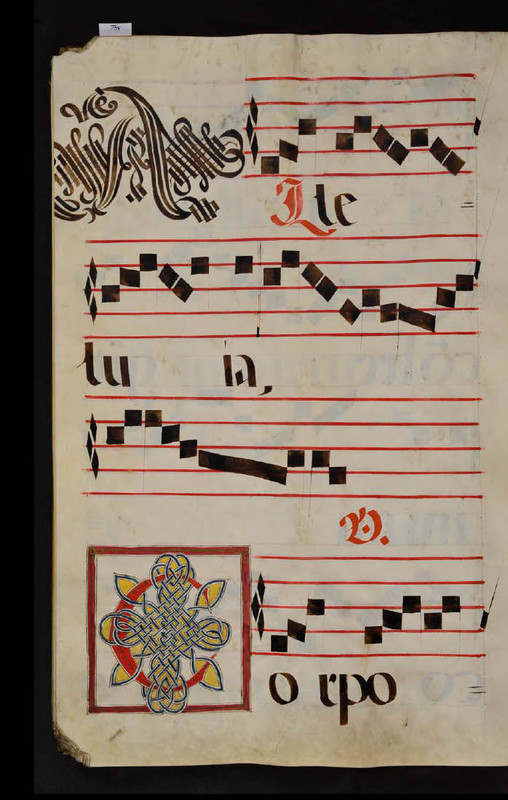 A Lle
lu ia,
V.
C o rpo